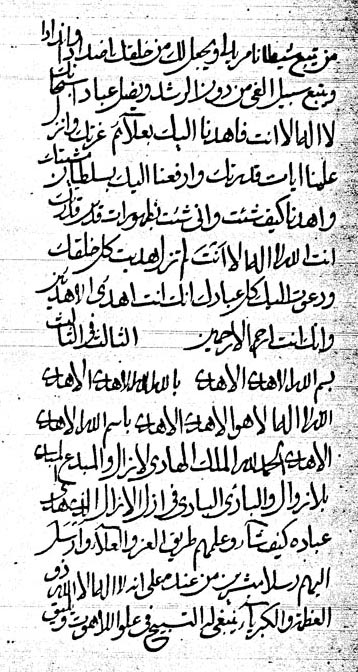 من يتبع شيطانا مريدا ويجعل لك من خلقك اضدادا واندادا
ويتبع سبيل الغي من دون الرشد ويضل عبادا سبحانك
لا اله الا انت فاهدنا اليك بعلائم عزتك وانزل
علينا ايات قدرتك وارفعنا اليك بسلطان مشيتك
واهدنا كيف شئت وانى شئت بظهورات قدرتك
انت الله لا اله الا انت لم تزل هديت كل خلقك
ودعوت اليك كل عبادك انك انت اهدى الاهدين
وانك انت ارحم الارحمين الثالث في الثالث
بسم الله الاهدى الاهدى بالله الله الاهدى الاهدى
الله لا اله الا هو الاهدى الاهدى باسم الله الاهدى
الاهدى الحمد لله الملك الهادي لا يزال والمبدع
بلا زوال والبادئ البادي في ازل الازال الذي هدى
عباده كيف شاء وعلمهم طريق العز والعلاء وارسل
اليهم رسلا مبشرين من عنده على انه لا اله الا الله ذو
العظمة والكبرياء ينبغي له التسبيح في علو اللاهوت